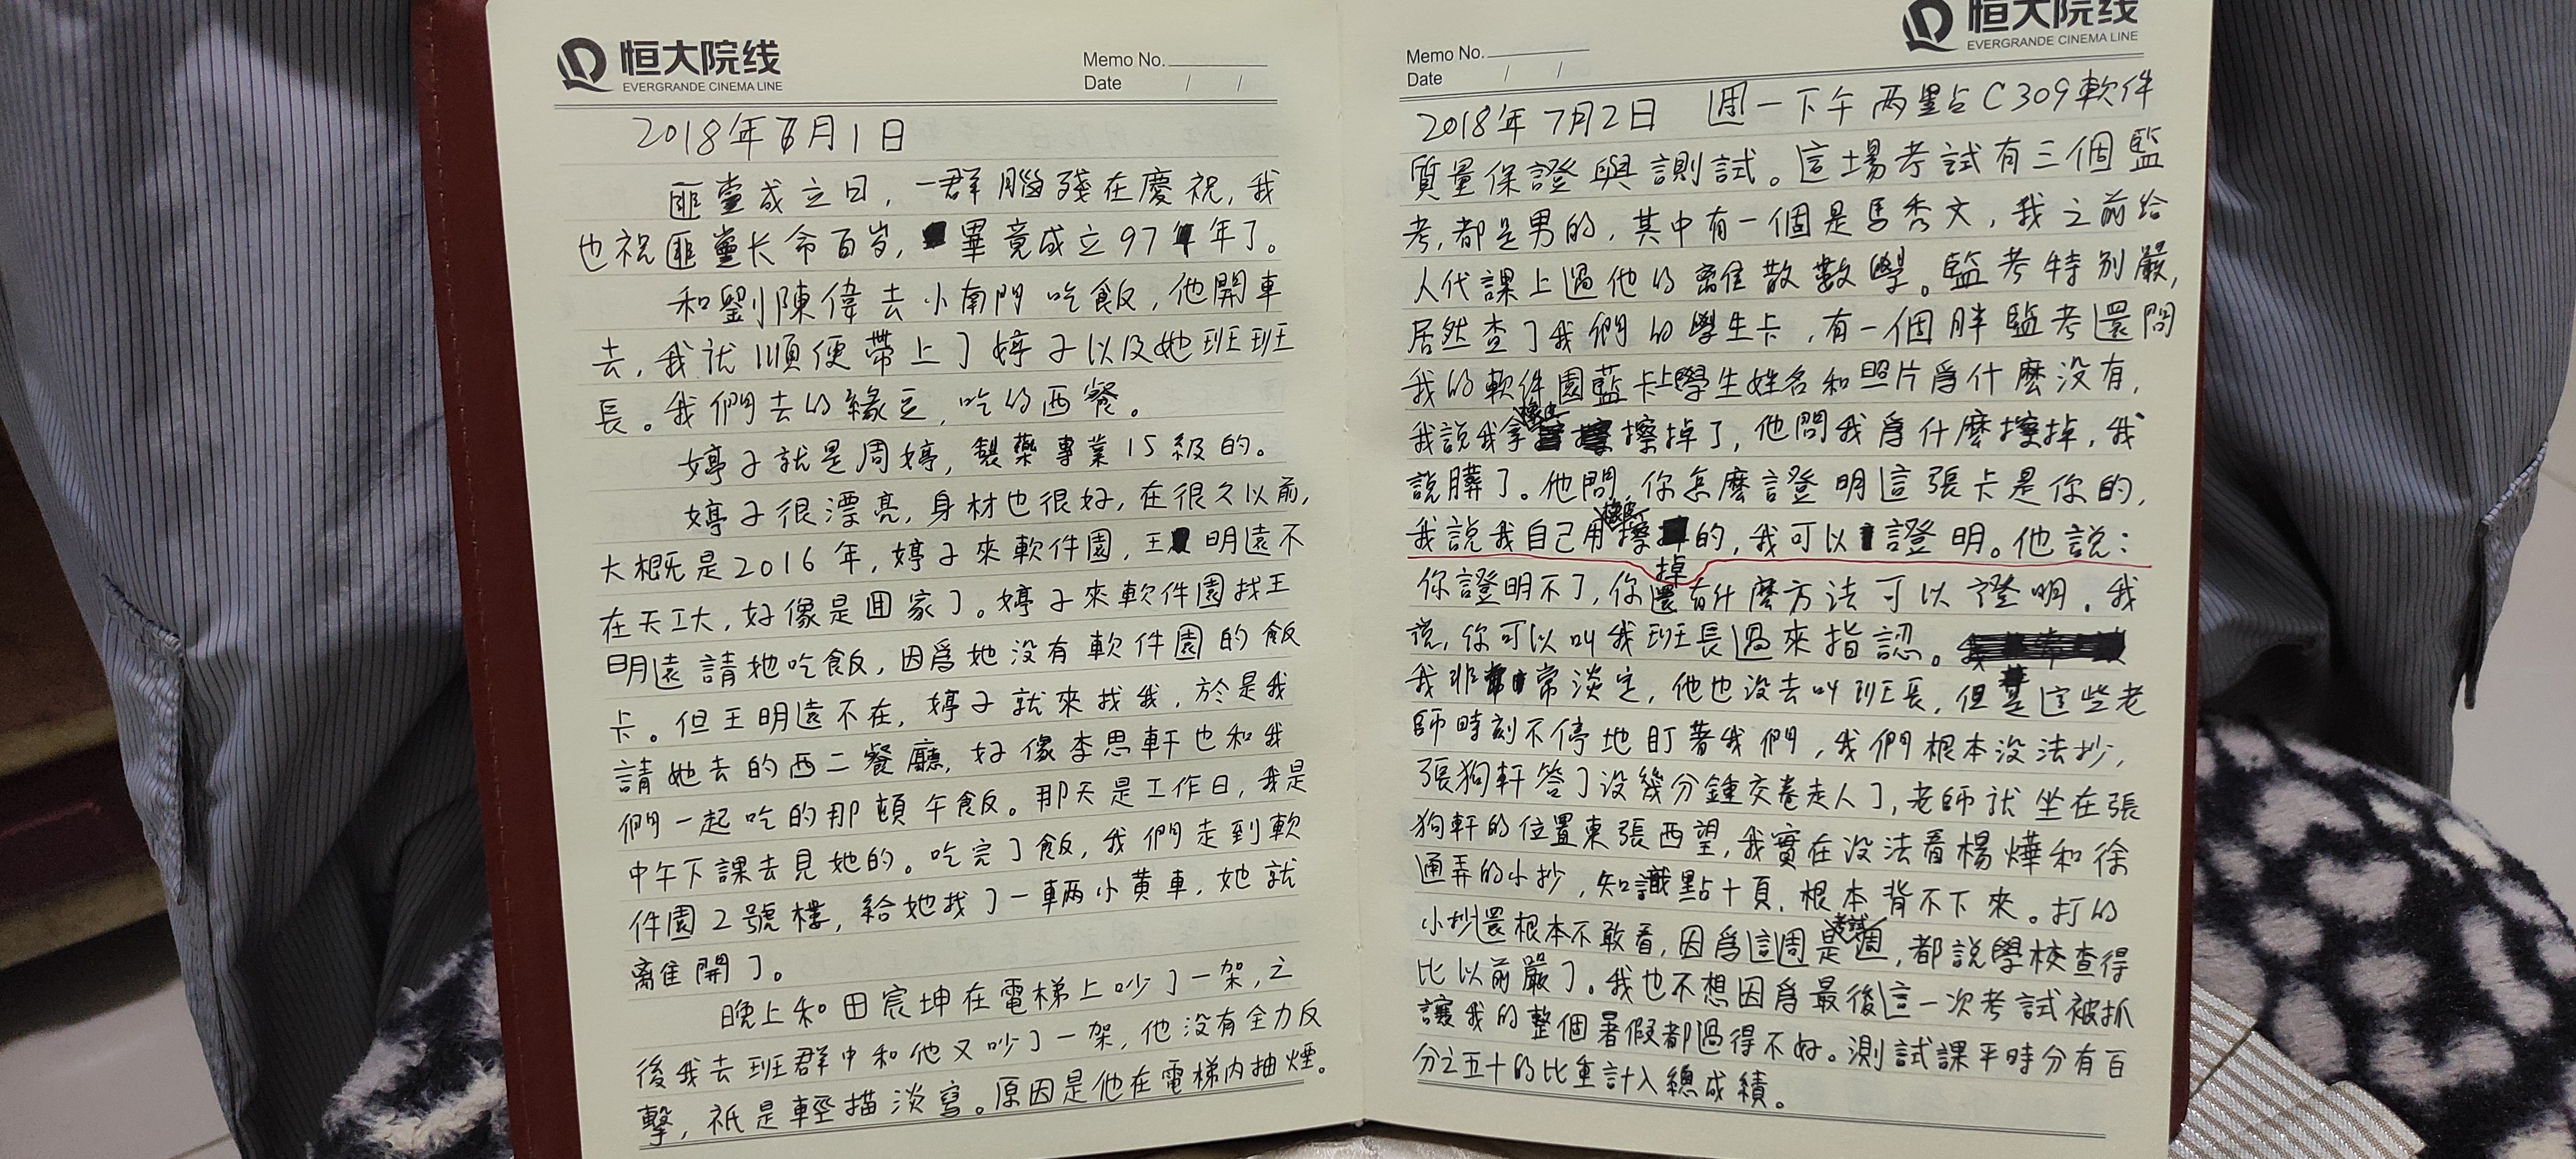 恒大院线
EVERGRANDE CINEMA LINE
Memo No.
Date / /
2018年7月1日
匪黨成立日，一群腦殘在慶祝，我
也祝匪黨长命百岁，畢竟成立97年了。
和劉陳偉去小南門吃飯，他開車
去，我就順便帶上了婷子以及她班班
長。我們去的緣豆，吃的西餐。
婷子就是周婷，製藥專業15級的。
婷子很漂亮，身材也很好，在很久以前，
大概是2016年，婷子來軟件園，王明遠不
在天工大，好像是回家了。婷子來軟件園找王
明遠請她吃飯，因爲她没有軟件園的飯
卡。但王明遠不在，婷子就來找我，於是我
請她去的西二餐廳，好像李思軒也和我
們一起吃的那頓午飯。那天是工作日，我是
中午下課去見她的。吃完了飯，我們走到軟
件園2號樓，給她找了一輛小黄車，她就
離開了。
晚上和田宸坤在電梯上吵了一架，之
後我去班群中和他又吵了一架，他没有全力反
擊，祇是輕描淡寫。原因是他在電梯内抽煙。
恒大院线
EVERGRANDE CINEMA LINE
Memo No.
Date / /
2018年7月2日 週一下午两點C309軟件
質量保證與測試。這場考試有三個監
考，都是男的，其中有一個是馬秀文，我之前给
人代課上過他的離散數學。監考特别嚴，
居然查了我們的學生卡，有一個胖監考還問
我的軟件園藍卡上學生姓名和照片爲什麽没有，
我說我拿橡皮擦掉了，他問我爲什麽擦掉，我
說髒了。他問，你怎麽證明這張卡是你的，
我說我自己用橡皮擦掉的，我可以證明。他說：
你證明不了，你還有什麽方法可以證明。我
说，你可以叫我班長過來指認。
我非常淡定，他也没去叫班長，但是這些老
師時刻不停地盯著我們，我們根本没法抄，
張狗軒答了没幾分鍾交卷走人了，老師就坐在張
狗軒的位置東張西望，我實在没法看楊燁和徐
通弄的小抄，知識點十頁，根本背不下來。打的
小抄還根本不敢看，因爲這周是考試週，都說學校查得
比以前嚴了。我也不想因爲最後這一次考試被抓
讓我的整個暑假都過得不好。測試課平時分有百
分之五十的比重計入總成績。